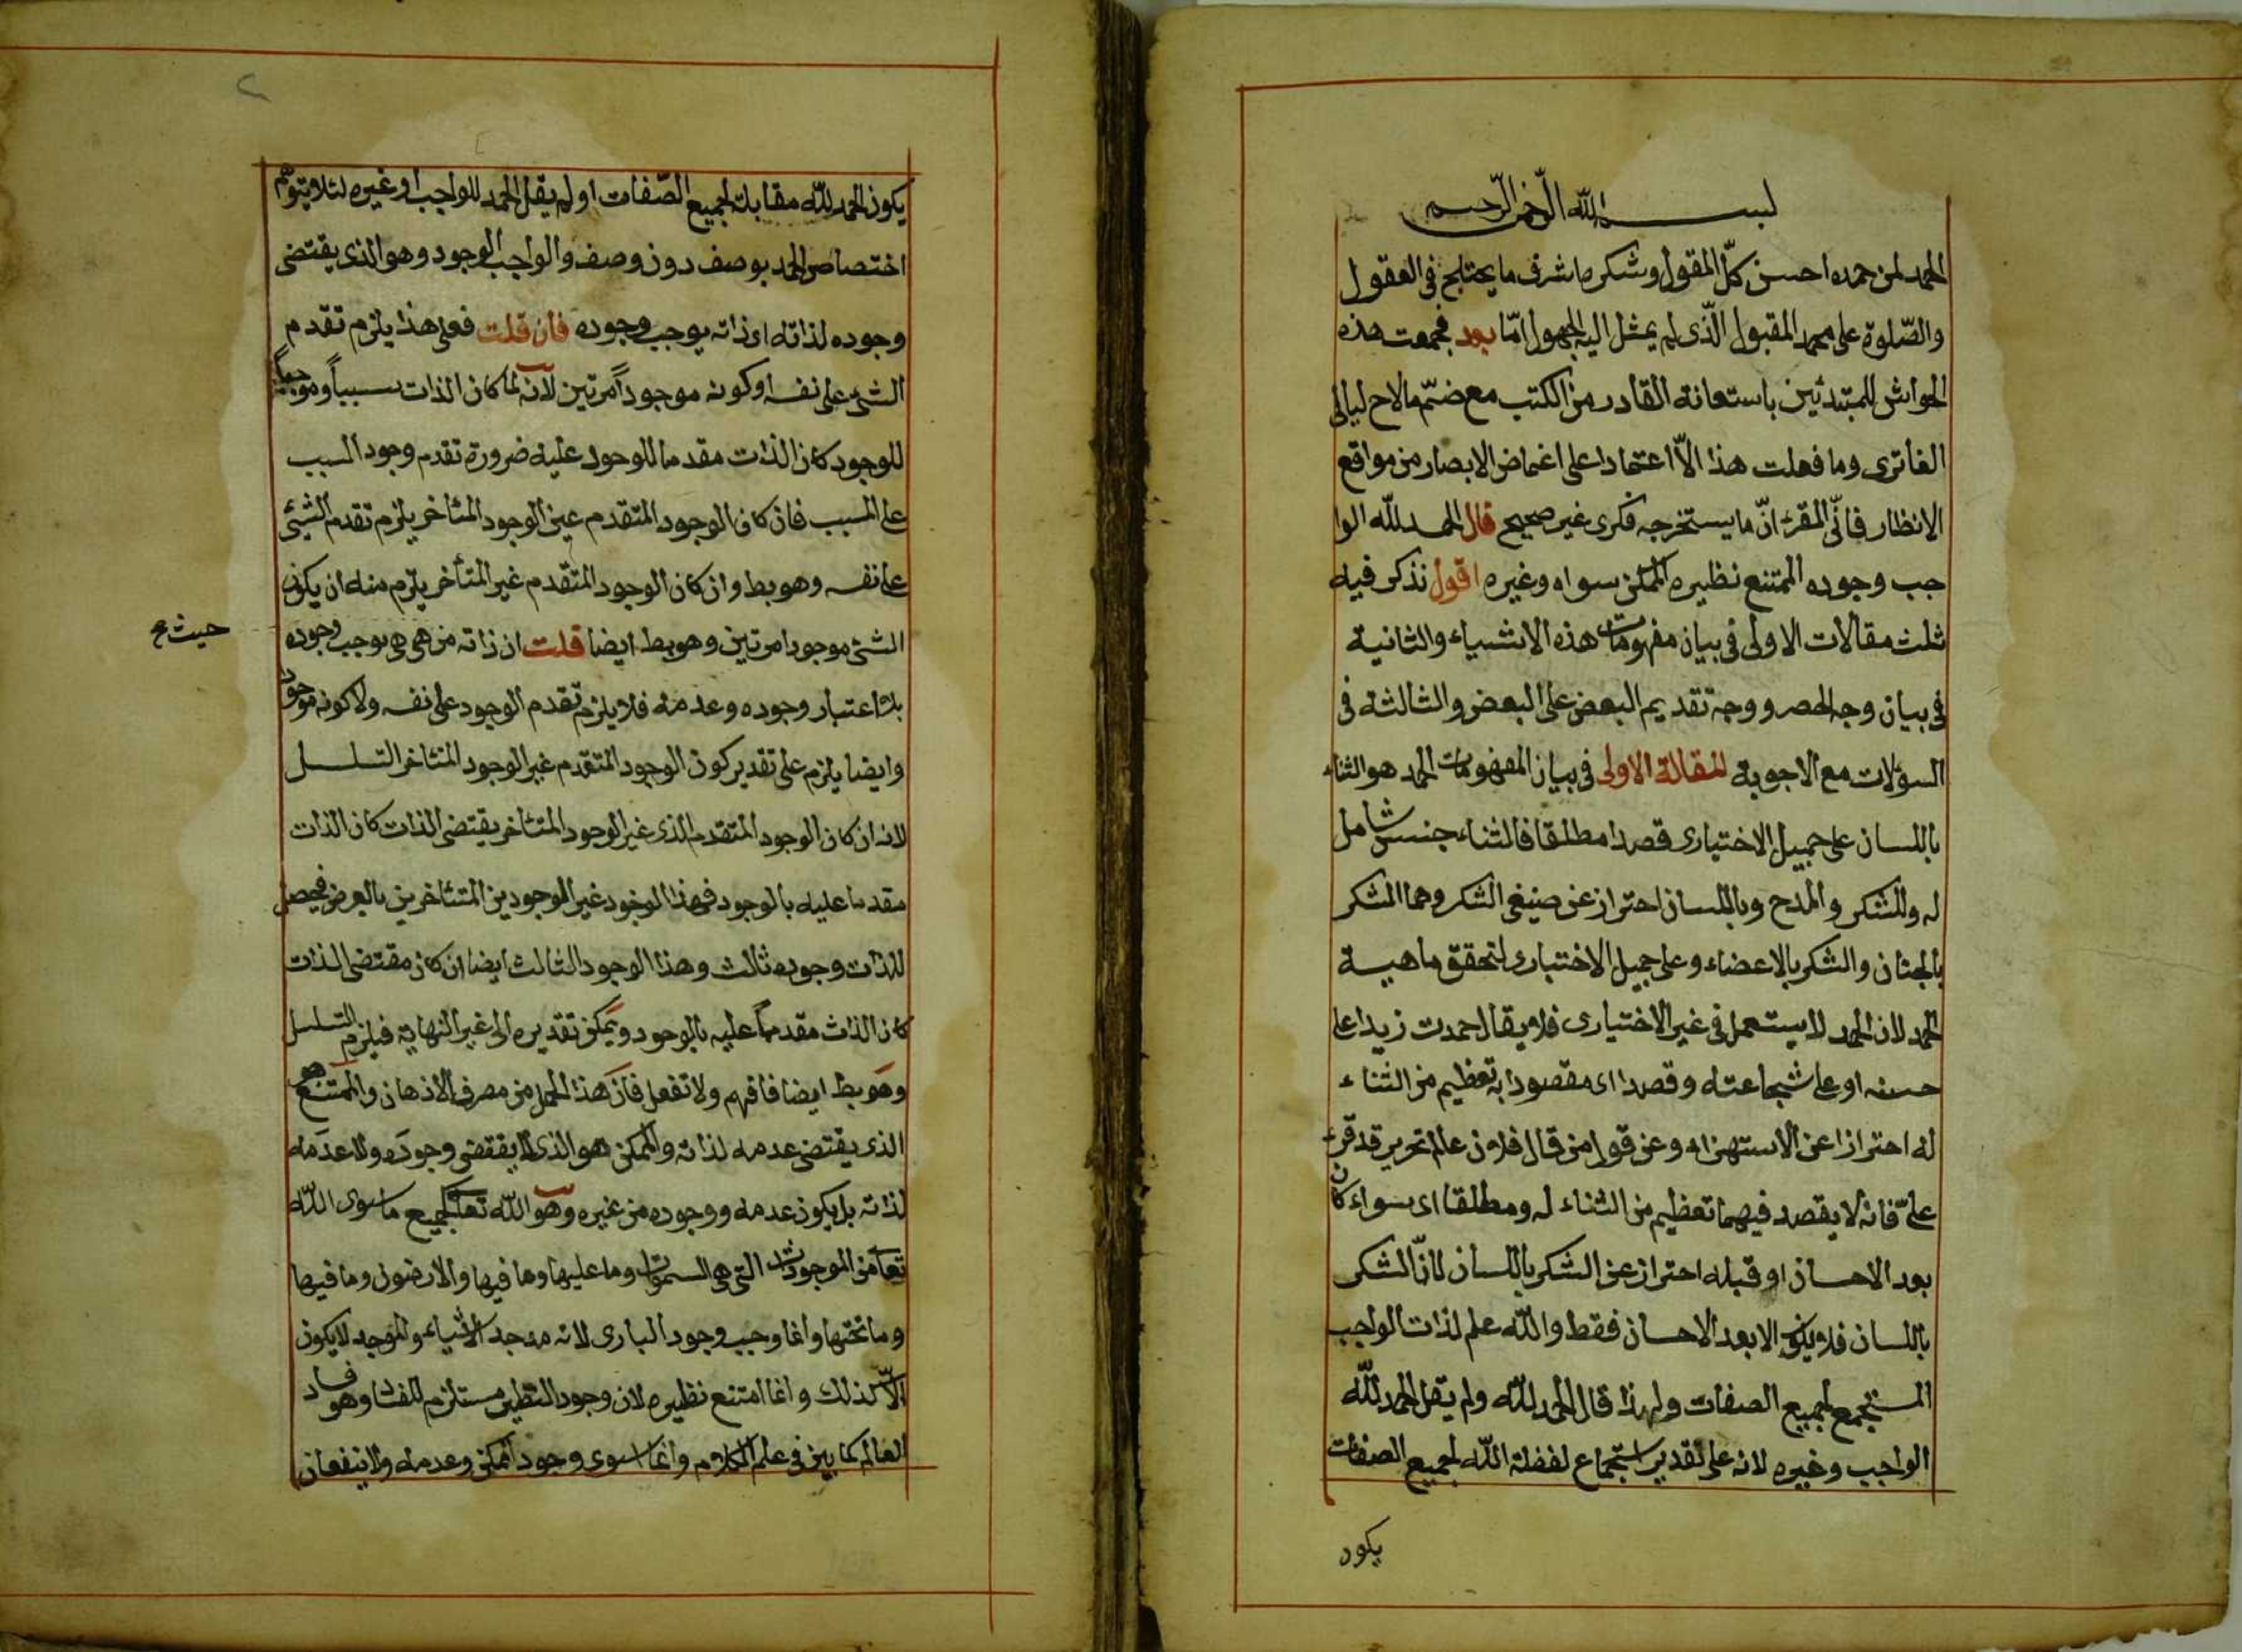 بسم الله الرحمن الرحيم
الحمد لمن حمده احسن كلّ المقول وشكره ما شرف ما يختلج فى العقول
والصّلوة على محمد المقبول الّذى لم يمثل اليه المجهول امّا بعد فجمعت هذه
الحواش للمبتدئين باستعانة القادر من الكتب مع ضمّ ما لاح لبالى
الفاترى وما فعلت هذا الاّ اعتمادا على اغماض الابصار من مواقع
الانظار فانّى المقرّ انّ ما يستخرجه فكرى غير صحيح قال الحمد للّه الوا
جب وجوده الممتنع نظيره الممكن سواه وغيره اقول نذكر فيه
ثلث مقالات الاولى فى بيان مفهومات هذه الاشياء والثانية
فى بيان وجه الحصر ووجه تقديم البعض على البعض والثالثة فى
السؤلات مع الاجوبة المقالة الاولى فى بيان المفهومات الحمد هو الثناء
باللسان على جميل الاختيارى قصدا مطلقا فالثناء جنس شامل
له وللشكر والمدح وباللسان احتراز عن صنيفى الشكر وهما الشكر
بالجنان والشكر بالاعضاء وعلى جميل الاختيارى لتحقق ماهية
الحمد لان الحمد لا يستعمل فى غير الاختيارى فلا يقال حمدت زيدا على
حسنه او على شجاعته وقصدا اى مقصودا به تعظيم من الثناء
له احترازا عن الاستهزاء وعن قول من قال فلان عالم نحرير قد قرء
علىّ فانه لا يقصد فيهما تعظيم من الثناء له ومطلقا اى سواء كان
بعد الاحسان او قبله احتراز عن الشكر باللسان لانّ الشكر
باللسان فلا يكون الا بعد الاحسان فقط واللّه علم لذات الواجب
المستجمع لجميع الصفات ولهذا قال الحمد للّه ولم يقل الحمد للّه
الواجب وغيره لانه على تقدير استجماع لفظة اللّه لجميع الصفات
يكون
يكون الحمد للّه مقابلة لجميع الصّفات او لم يقل الحمد للواجب او غيره لئلا يتوهم
اختصاص الحمد بوصف دون وصف والواجب الوجود وهو الذى يقتضى
وجوده لذاته اى ذاته يوجب وجوده فان قلت فعلى هذا يلزم تقدم
الشئ على نفسه او كونه موجوداً مرتين لانه لما كان الذات سبباً وموجباً
للوجود كان الذات مقدما للوجود عليه ضرورة تقدم وجود السبب
على المسبب فان كان الوجود المتقدم عين الوجود المتأخر يلزم تقدم الشئ
على نفسه وهو بط وان كان الوجود المتقدم غير المتأخر يلزم منه ان يكون
الشئ موجودا مرتين وهو بط ايضا قلت ان ذاته من هى هى يوجب وجوده
حيث ع
بلا اعتبار وجوده وعدمه فلا يلزم تقدم الوجود على نفسه ولا كونه موجود
وايضا يلزم على تقدير كون الوجود المتقدم غير الوجود المتأخر التسلسل
لانه ان كان الوجود المتقدم الذى غير الوجود المتأخر يقتضى الذات كان الذات
مقدما عليه بالوجود فهذا الوجود غير الوجودين المتأخرين بالعرض فيحصل
للذات وجود ثالث وهذا الوجود الثالث ايضا ان كان مقتضى الذات
كان الذات مقدماً عليه بالوجود ويمكن تقديره الى غير النهاية فيلزم التسلسل
وهو بط ايضا فافهم ولا تفعل فان هذا المحل من مصرف الاذهان والممتنع هو
الذى يقتضى عدمه لذاته والممكن هو الذى لا يقتضى وجوده ولا عدمه
لذاته بل يكون عدمه ووجوده من غيره وهو اللّه تعالى لجميع ما سوى اللّه
تعا من الموجودات التى هى السموات وما عليها وما فيها والارضون وما فيها
وما تحتها وانما وجب وجود البارى لانه موجد الاشياء والموجد لا يكون
الاّ كذلك وانما امتنع نظيره لان وجود النظير مستلزم للفساد وهو فساد
العالم كما بين فى علم الكلام وانما سوى وجود الممكن وعدمه ولا ينفعان